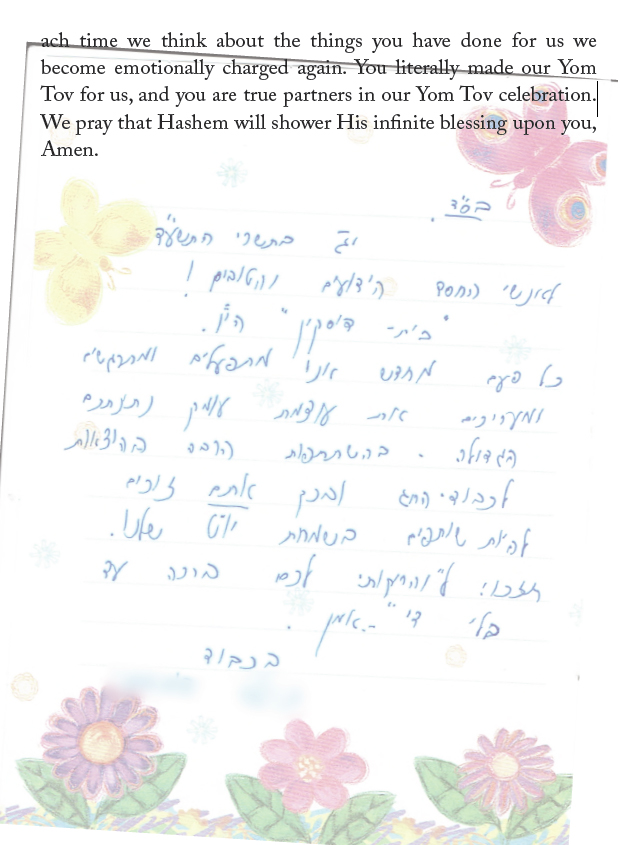 ach time we think about the things you have done for us we
become emotionally charged again. You literally made our Yom
Tov for us, and you are true partners in our Yom Tov celebration.
We pray that Hashem will shower His infinite blessing upon you,
Amen.
בס"ד
י"ג בתשרי התשע"ד
לאנשי החסד הידועים והטובים !
"בית - דיסקין" הי"ו.
כל פעם מחדש אנו מתפעלים ומתרגשים
ומעריכים את עוצמת עומק נתינתכם
הגדולה. בהשתתפות הרבה בהוצאות
לכבוד החג ובכך אתם זוכים
להיות שותפים בשמחת יו"ט שלנו.
תזכו! ל"והריקותי לכם ברכה עד
בלי די" - אמן.
בכבוד